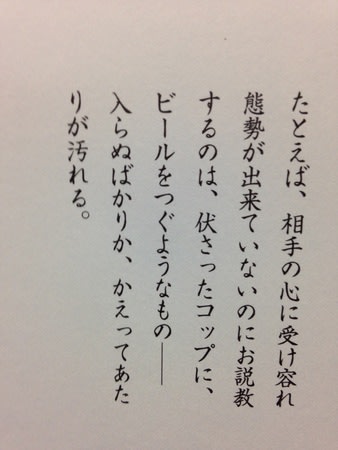 たとえば、相手の心に受け容れ
態勢が出来ていないのにお説教
するのは、伏さったコップに、
ビールをつぐようなもの――
入らぬばかりか、かえってあた
りが汚れる。